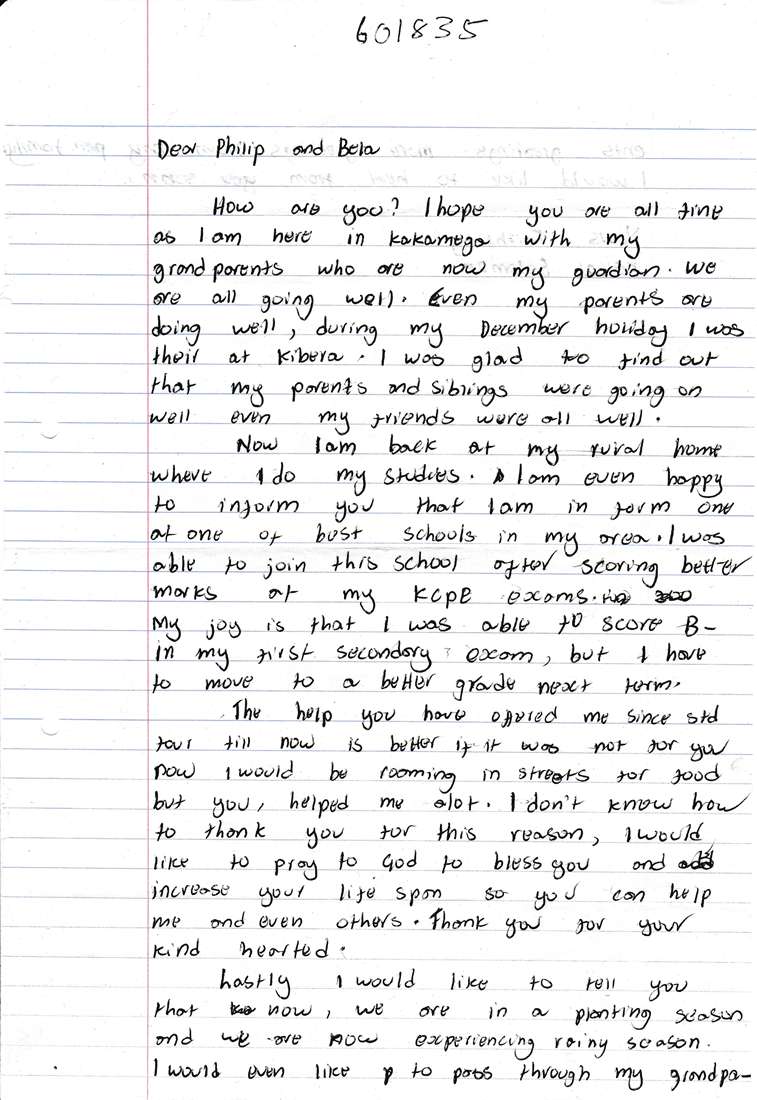 601835
Dear Philip and Bela
How are you? I hope you are all fine
as I am here in kakamega with my
grandparents who are now my guardian. we
are all going well. Even my parents are
doing well, during my December holiday I was
their at kibera. I was glad to find out
that my parents and siblings were going on
well even my friends were all well.
Now I am back at my rural home
where I do my studies. I am even happy
to inform you that I am in form one
at one of best schools in my area. I was
able to join this school after scoring better
marks at my KCPE exams.
My joy is that I was able to score B-
in my first secondary exam, but I have
to move to a better grade next term.
The help you have offered me since std
four till now is better if it was not for you
now I would be roaming in streets for food
but you, helped me alot. I don't know how
to thank you for this reason, I would
like to pray to God to bless you and
increase your life span so you can help
me and even others. Thank you for your
kind hearted.
Lastly I would like to tell you
that now, we are in a planting season
and we are now experiencing rainy season.
I would even like to pass through my grandpa-